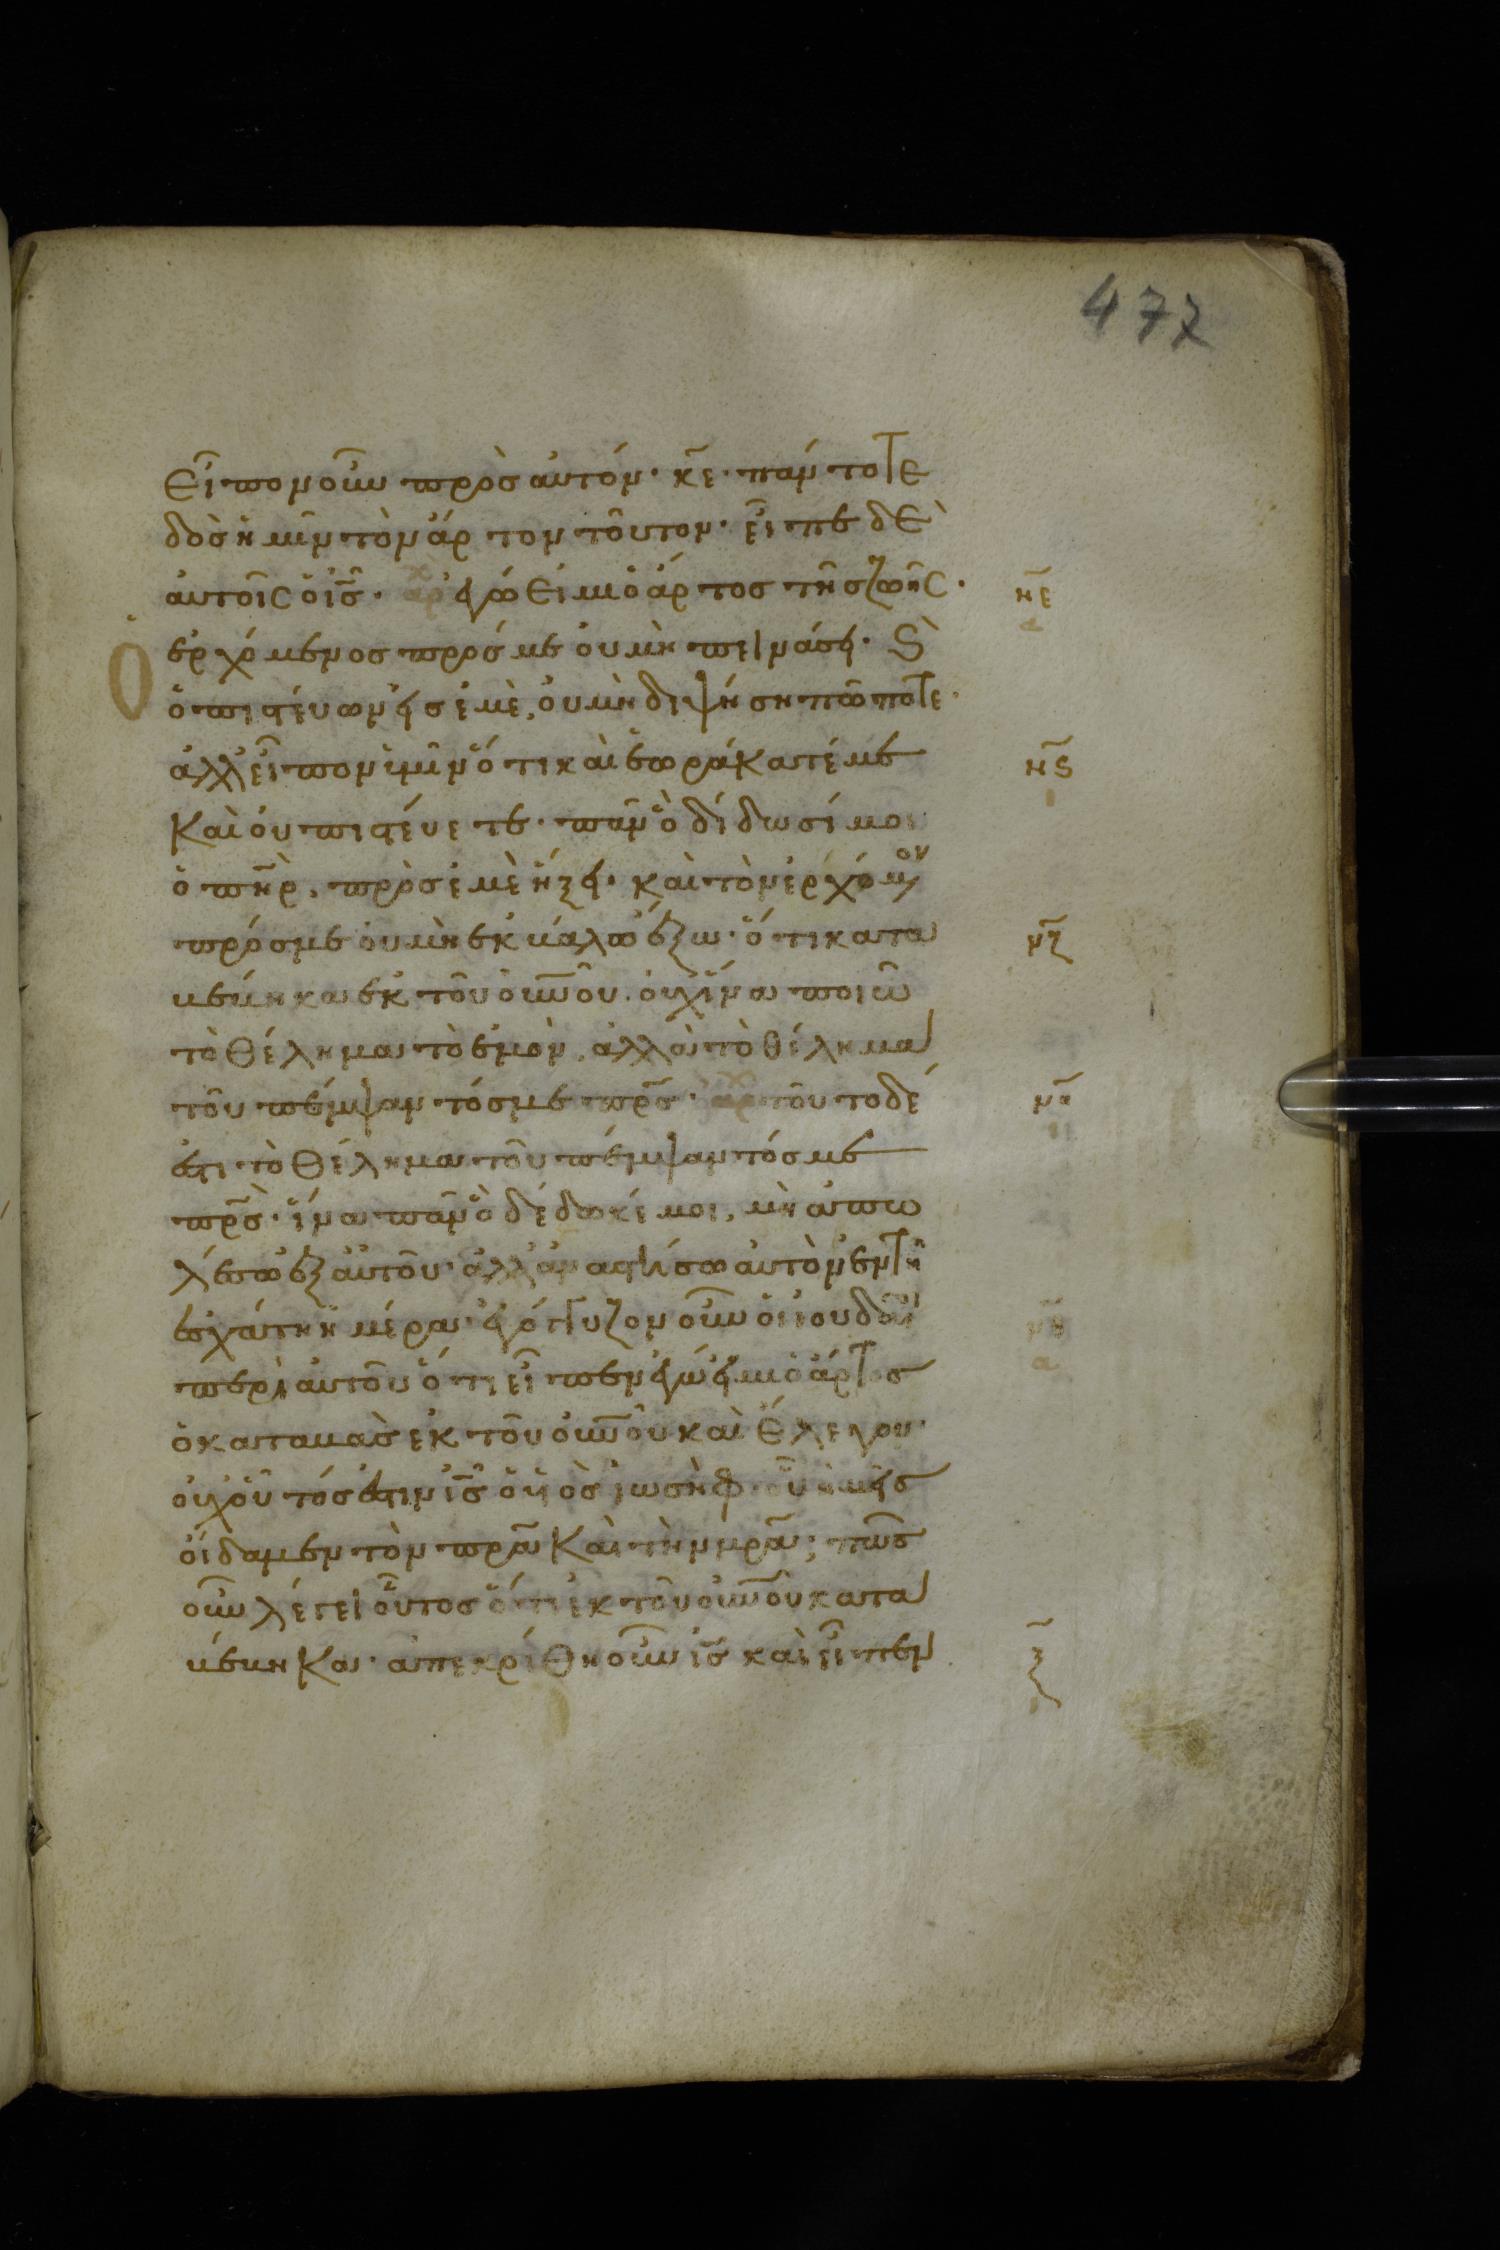 477
εἶπον οὖν πρὸς αὐτόν· κ̅ε̅· πάντοτε
δὸς ἡμῖν τὸν ἄρτον τοῦτον· εἶπε δὲ
αὐτοῖς ὁ ι̅ς̅· ἐγώ εἰμι ὁ ἄρτος τῆς ζωῆς· ν̅ε̅
Ὁ ἐρχόμενος πρός με οὐ μὴ πεινάσει· Ϗ
ὁ πιστεύων εἰς ἐμὲ, οὐ μὴ διψήση πώποτε·
ἀλλ εἶπον ὑμῖν ὅτι καὶ ἑωράκατέ με ν̅ς̅
καὶ οὐ πιστεύετε· πᾶν ὃ δίδωσί μοι
ὁ π̅η̅ρ̅, πρὸς ἐμὲ ἥξει· καὶ τὸν ἐρχόμον
πρός με οὐ μὴ ἐκβάλω ἔξω· ὅτι κατα ν̅ζ̅
βέβηκα ἐκ τοῦ ο̅υ̅ν̅ο̅υ̅· οὐχ ἵνα ποιῶ
τὸ θέλημα τὸ ἐμὸν, ἀλλὰ τὸ θέλημα
τοῦ πέμψαντός με π̅ρ̅ς̅· τοῦτο δέ
ἐστι τὸ θέλημα τοῦ πέμψαντός με
π̅ρ̅ς̅· ἵνα πᾶν ὃ δέδωκέ μοι, μὴ ἀπο
λέσω ἐξ αὐτοῦ· ἀλλ ἀναστήσω αὐτὸ ἐν τῆ
ἐσχάτη ἡμέρα· ἐγόγγυζον οὖν οἱ ἰουδαῖοι
περὶ αὐτοῦ ὅτι εἶπεν ἐγώ εἰμι ὁ ἄρτος
ὁ καταβὰς ἐκ τοῦ ο̅υ̅ν̅ο̅υ̅ καὶ ἔλεγον·
οὐχ οὗτός ἐστιν ι̅ς̅ ὁ υἱὸς ἰωσὴφ οὗ ἡμεῖς
οἴδαμεν τὸν π̅ρ̅α̅ καὶ τὴν μ̅ρ̅α̅; πῶς
οὖν λέγει οὗτος ὅτι ἐκ τοῦ ο̅υ̅ν̅ο̅υ̅ κατα
βέβηκα· ἀπεκρίθη οὖν ι̅ς̅ καὶ εἶπεν ξ̅